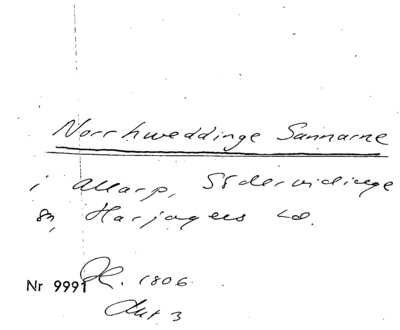 Norrhweddinge Sannarne
i Allarp, Södervidinge
sn, Harjagers hd.
Nr 9991 Pl. 1806.
Aut 3